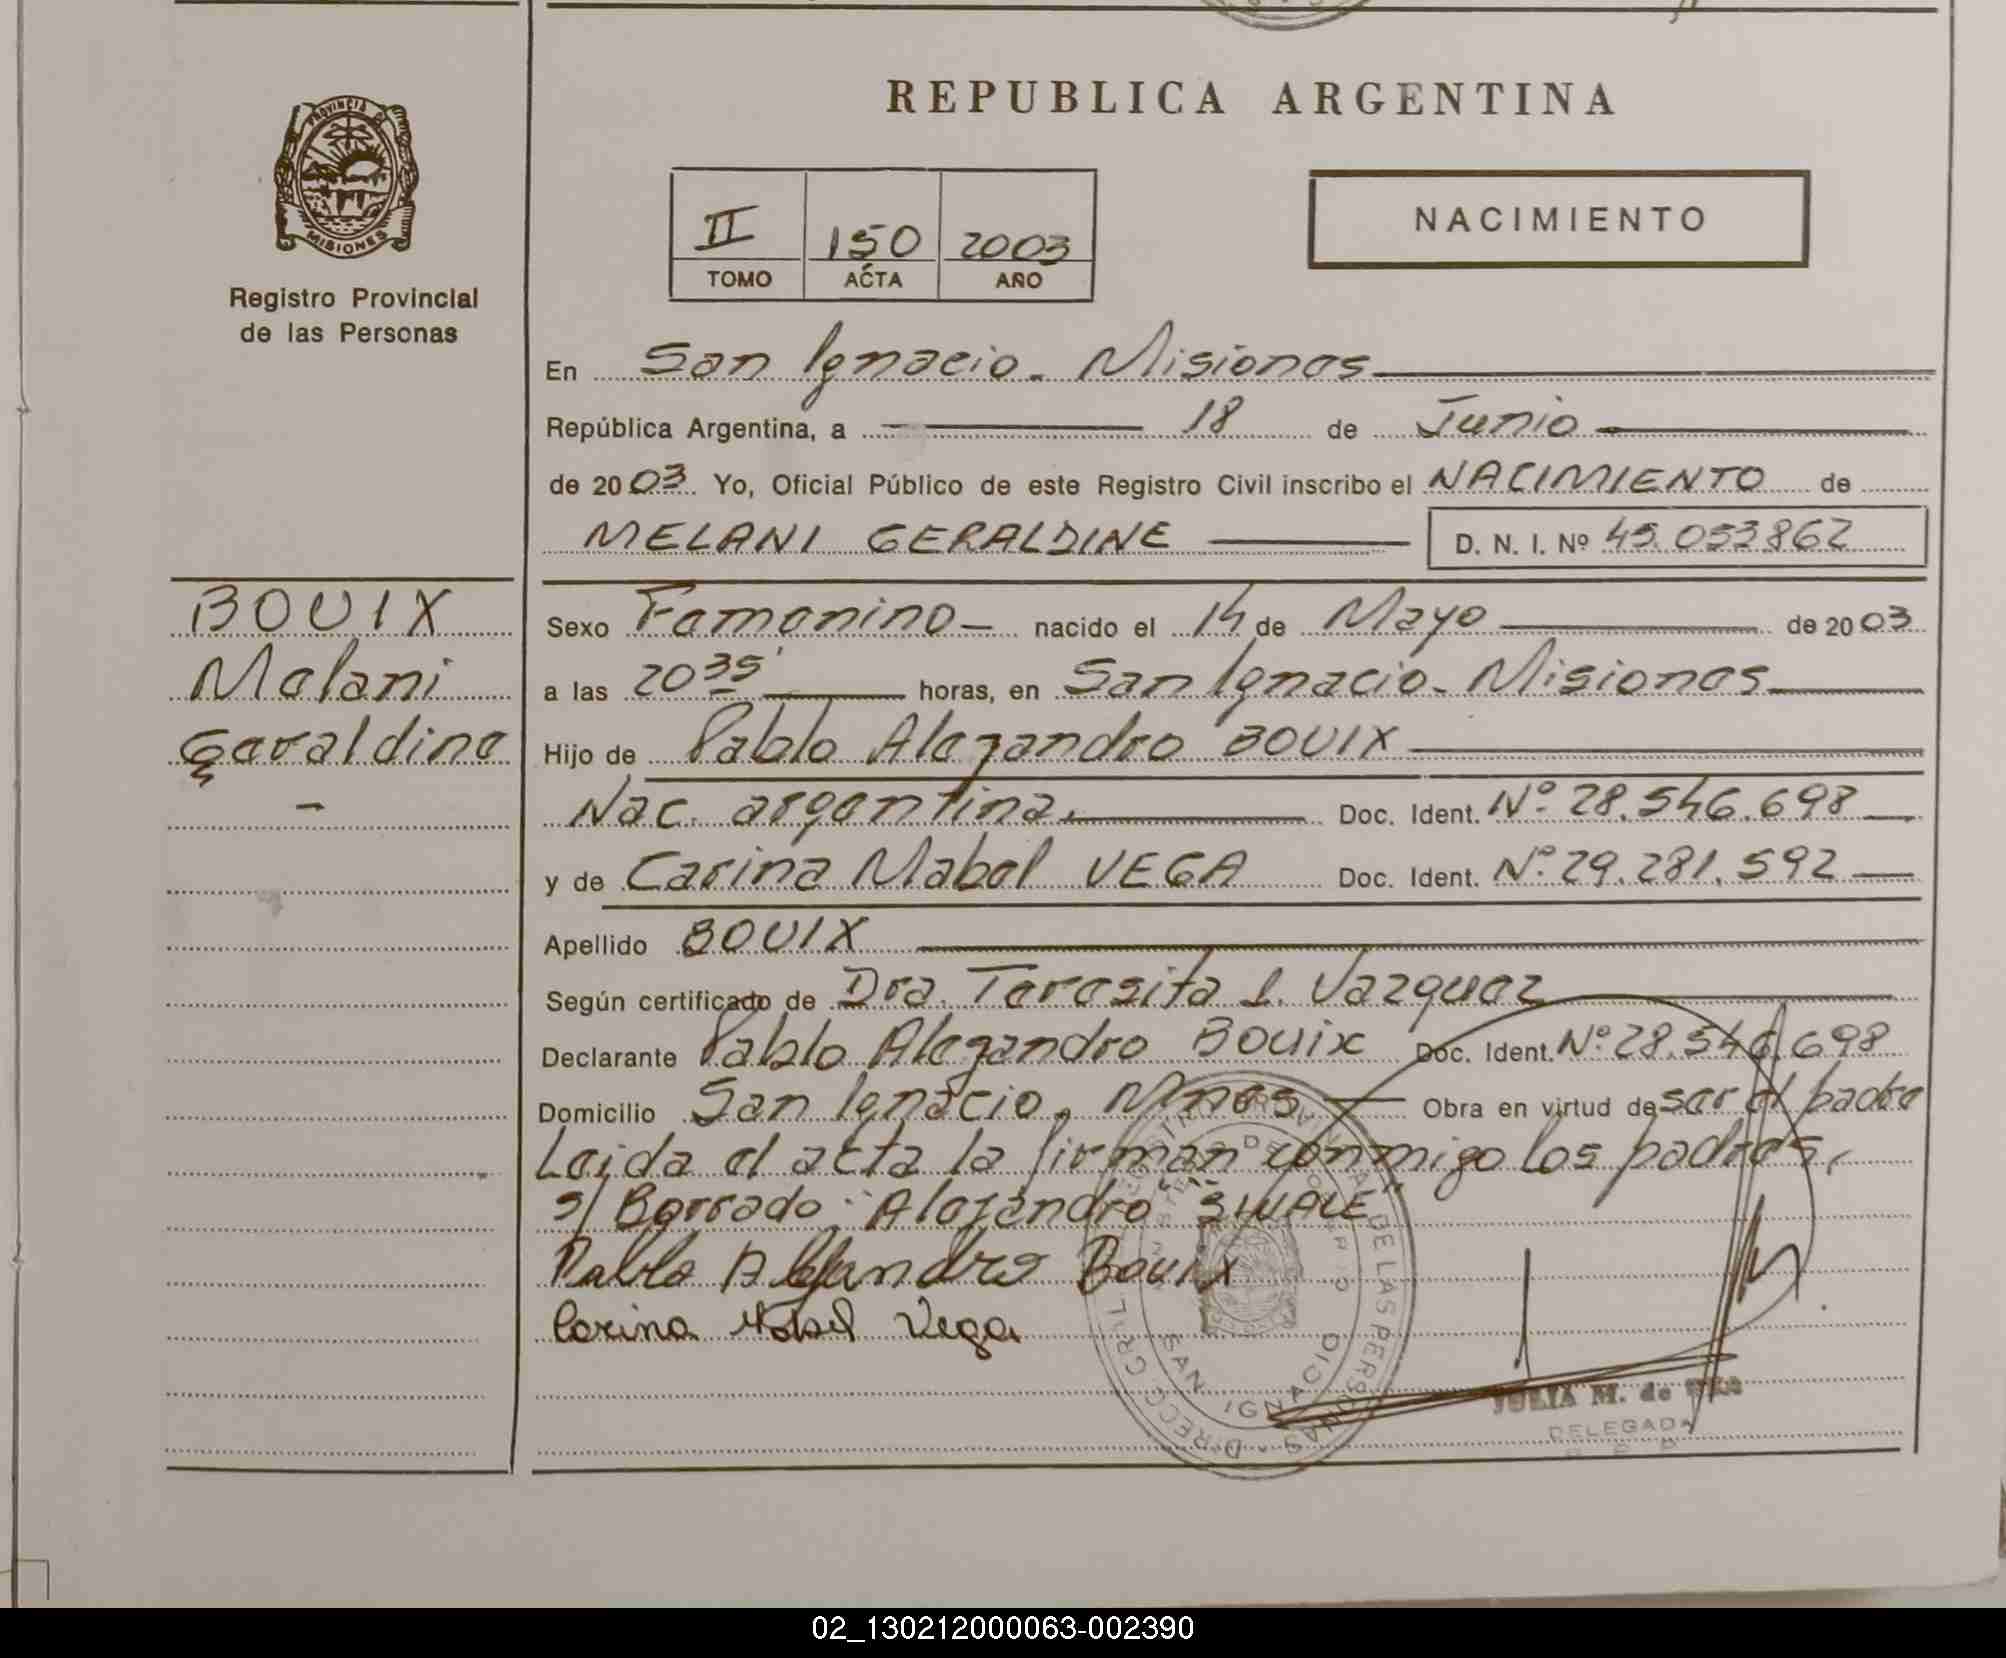 REPUBLICA ARGENTINA
PROVINCIA DE
MISIONES
Registro Provincial
de las Personas
II 150 2003
TOMO ACTA AÑO
NACIMIENTO
En San Ignacio - Misiones
República Argentina, a 18 de Junio
de 2003. Yo, Oficial Público de este Registro Civil inscribo el NACIMIENTO de
MELANI GERALDINE D. N. I. Nº 45.053862
BOUIX
Melani
Geraldine
-
Sexo Femenino - nacido el 14 de Mayo de 2003
a las 20 35' horas, en San Ignacio - Misiones
Hijo de Pablo Alejandro BOUIX
Nac. argentina. Doc. Ident. Nº 28.546.698
y de Carina Mabel VEGA Doc. Ident. Nº 29.281.592
Apellido BOUIX
Según certificado de Dra. Teresita I. Vazquez
Declarante Pablo Alejandro BOUIX Doc. Ident. Nº 28.546.698
Domicilio San Ignacio, Mnes Obra en virtud de ser el padre
Leida el acta la firman conmigo los padres,
s/ Borrado: "Alejandro" "S/VALE"
Pablo Alejandro Bouix
Carina Mabel Vega
SAN IGNACIO
DE LAS PERSONAS
JULIA M. de
DELEGADA
02_130212000063-002390